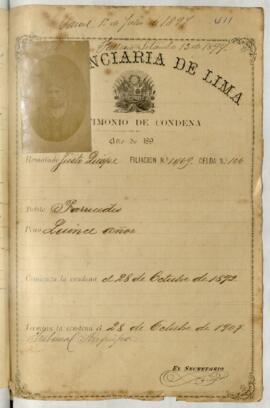 de Julio de 1897
411
de 1899
NCIARIA DE LIMA
TIMONIO DE CONDENA
Año de 189
Rematado Justo Quispe FILIACION N.º CELDA N.º 106
Delito Homicidio
Pena Quince años
Comienza la condena el 28 de Octubre de 1892
Termina la condena el 28 de Octubre de 1907
Tribunal Arequipa
EL SECRETARIO